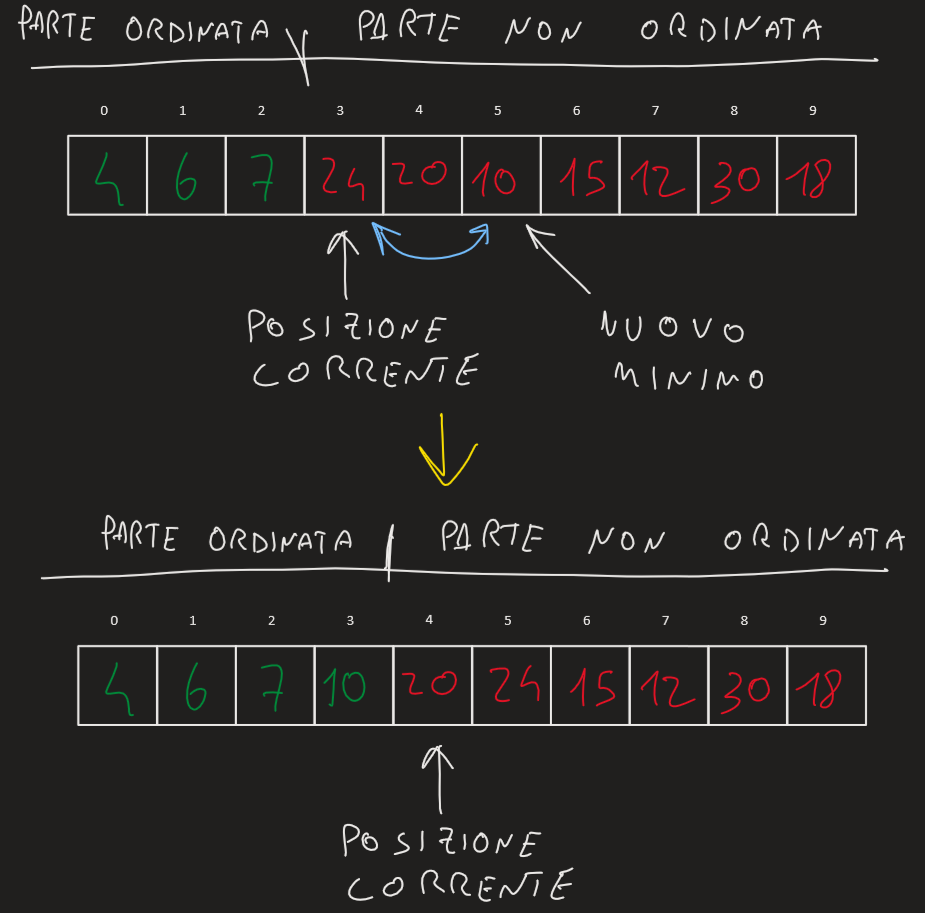 PARTE ORDINATA PARTE NON ORDINATA
0 1 2 3 4 5 6 7 8 9
4 6 7 24 20 10 15 12 30 18
POSIZIONE
CORRENTE
NUOVO
MINIMO
PARTE ORDINATA PARTE NON ORDINATA
0 1 2 3 4 5 6 7 8 9
4 6 7 10 20 24 15 12 30 18
POSIZIONE
CORRENTE